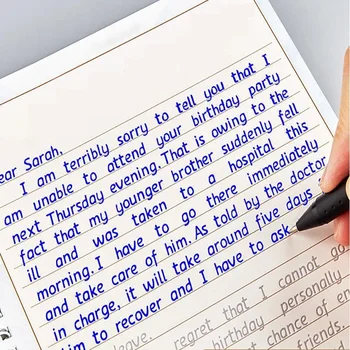 ear Sarah,
I am terribly sorry to tell you that I
am unable to attend your birthday party
next Thursday evening. That is owing to the
fact that my younger brother suddenly fell
ill and was taken to a hospital this
morning. I have to go there immediately
and take care of him. As told by the doctor
in charge, it will take around five days
him to recover and I have to ask
leave, regret that I cannot go
birthday personally
chance of en